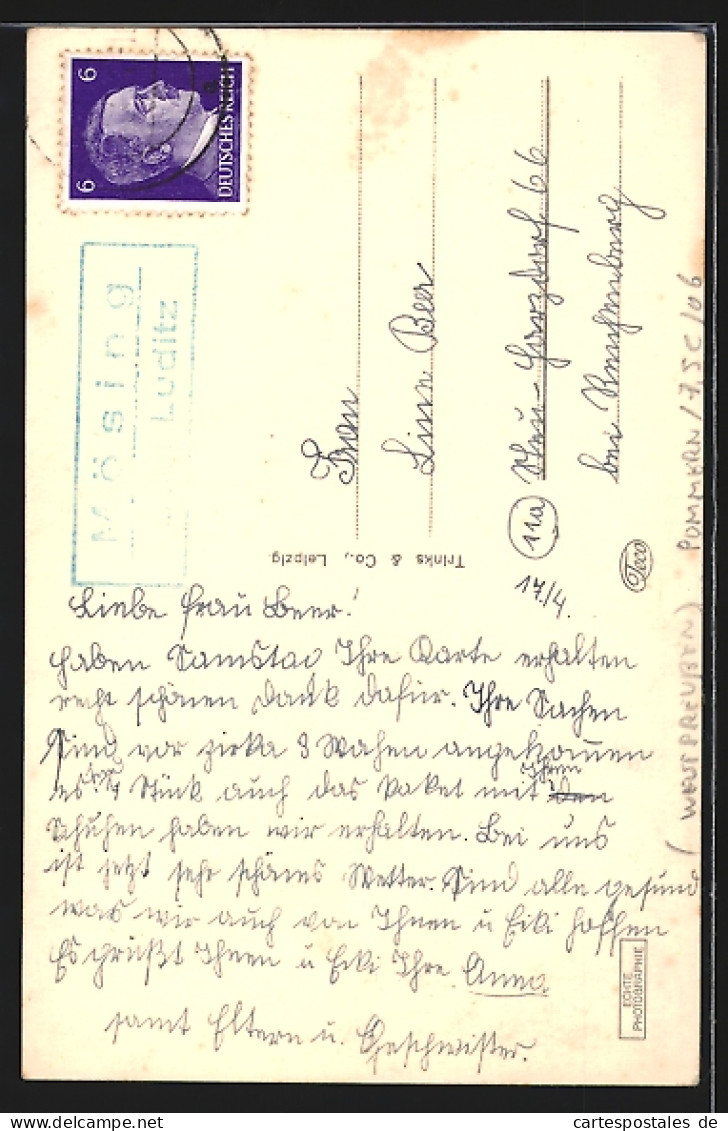 6
6
DEUTSCHES REICH
Mösing
Luditz
Frau
Line Beer
Neu-Harzdorf 66
11a
bei Reichenberg
Trinks & Co., Leipzig
Teco
17./4.
Liebe Frau Beer!
haben Samstag Ihre Karte erhalten
recht schönen Dank dafür. Ihre Sachen
sind vor zirka 3 Wochen angekommen
es 4 Stück auch das Paket mit Ihren
Schuhen haben wir erhalten. Bei uns
ist jetzt sehr schönes Wetter. Sind alle gesund
was wir auch von Ihnen u Eiki hoffen
Es grüßt Ihnen u Eiki Ihre Anna
samt Eltern u. Geschwister.
ECHTE
PHOTOGRAPHIE
(WESTPREUßEN) POMMERN / 7,5C / 06
delcampe.net
cartespostales de